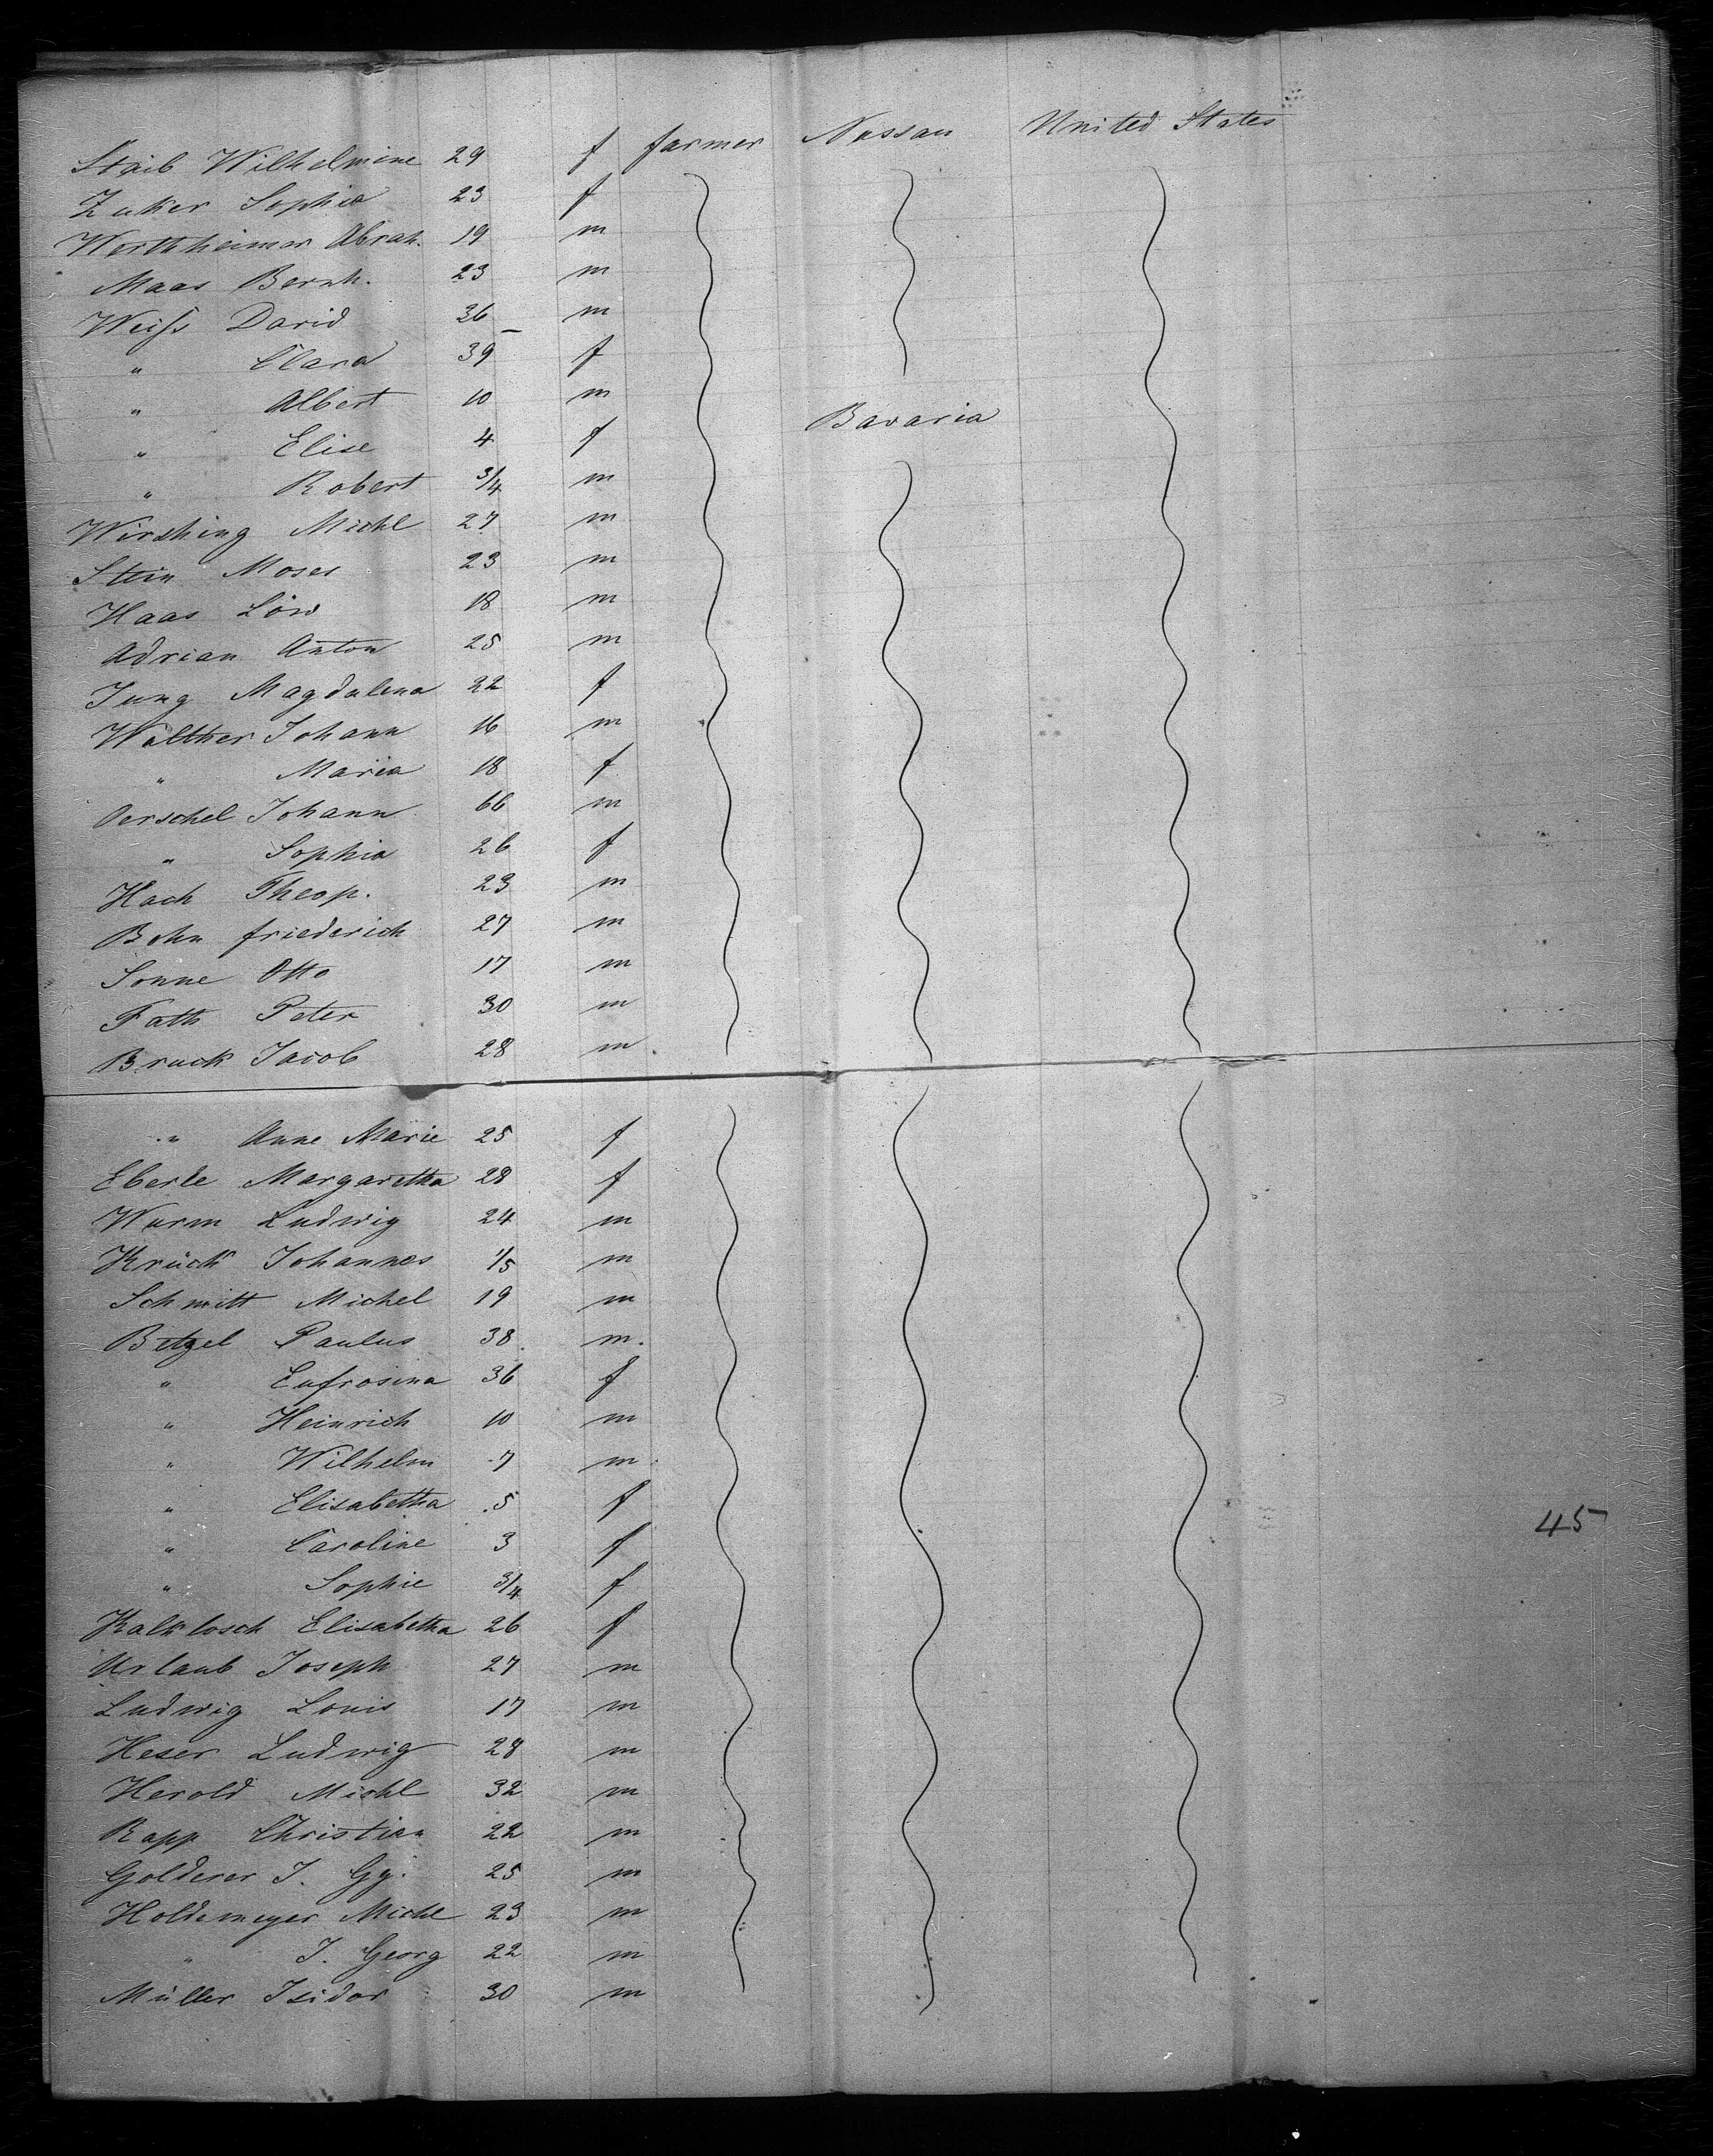 Staib Wilhelmine 29 f farmer Nassau United States
Zuker Sophia 23 f
Werthheimer Abrah. 19 m
Maas Bernh. 23 m
Weiſs David 36 m
" Clara 39 f
" Albert 10 m
" Elise 4 f Bavaria
" Robert 3/4 m
Wirshing Michl 27 m
Stein Moses 23 m
Haas Löw 18 m
Adrian Anton 25 m
Jung Magdalena 22 f
Walther Johann 16 m
" Maria 18 f
Oerschel Johann 66 m
" Sophia 26 f
Hach Theop. 23 m
Bohn friederich 27 m
Sonne Otto 17 m
Fath Peter 30 m
Bruck Jacob 28 m
" Anne Marie 25 f
Eberle Margaretha 28 f
Wurm Ludwig 24 m
Krück Johannes 1/5 m
Schmitt Michel 19 m
Betzel Paulus 38 m.
" Eufrosina 36 f
" Heinrich 10 m
" Wilhelm 7 m
" Elisabetha 5 f
" Caroline 3 f
45
" Sophie 3/4 f
Kalklosch Elisabetha 26 f
Urlaub Joseph 27 m
Ludwig Louis 17 m
Heser Ludwig 28 m
Herold Michl 32 m
Rapp Christian 22 m
Golderer J. Gg. 25 m
Holdemeyer Michl 23 m
" J. Georg 22 m
Müller Isidor 30 m